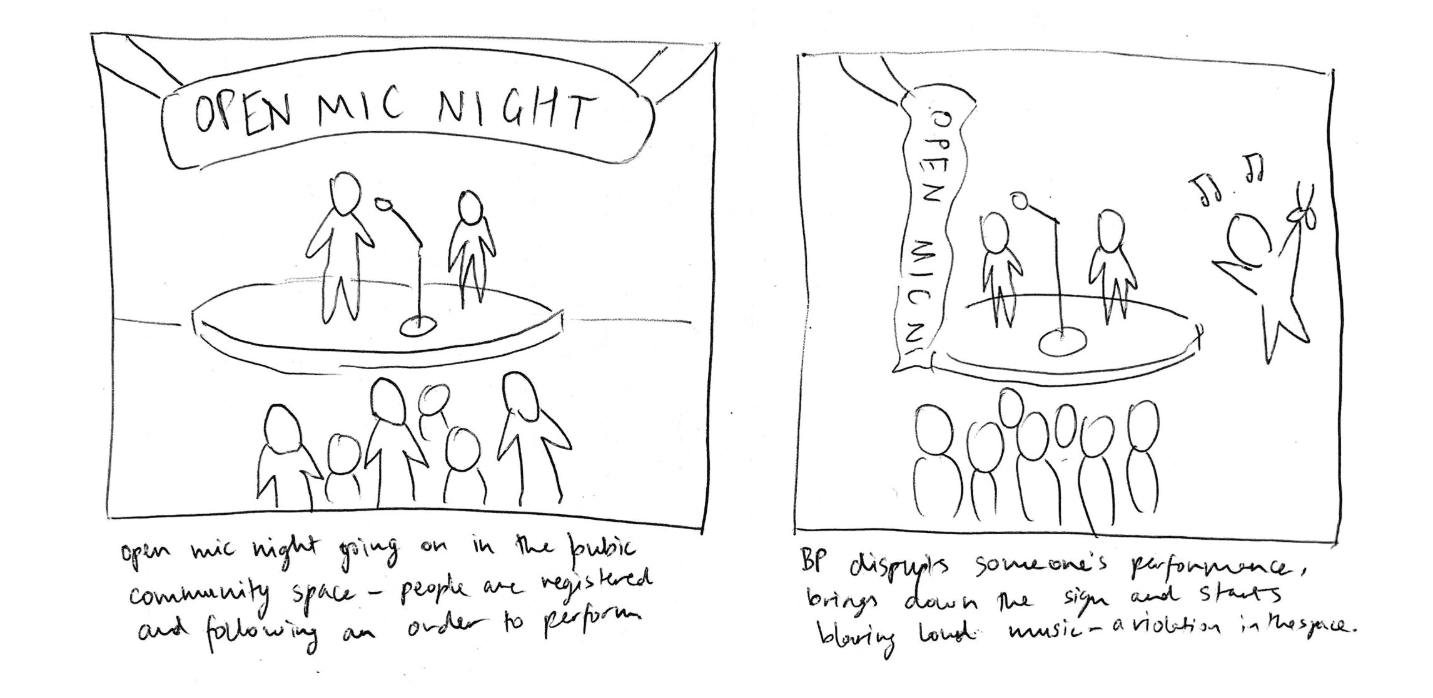 OPEN MIC NIGHT
open mic night going on in the pubic
community space – people are registered
and following an order to perform
OPEN MIC NI
BP disrupts someone's performance,
brings down the sign and starts
blowing loud music – a violation in the space.